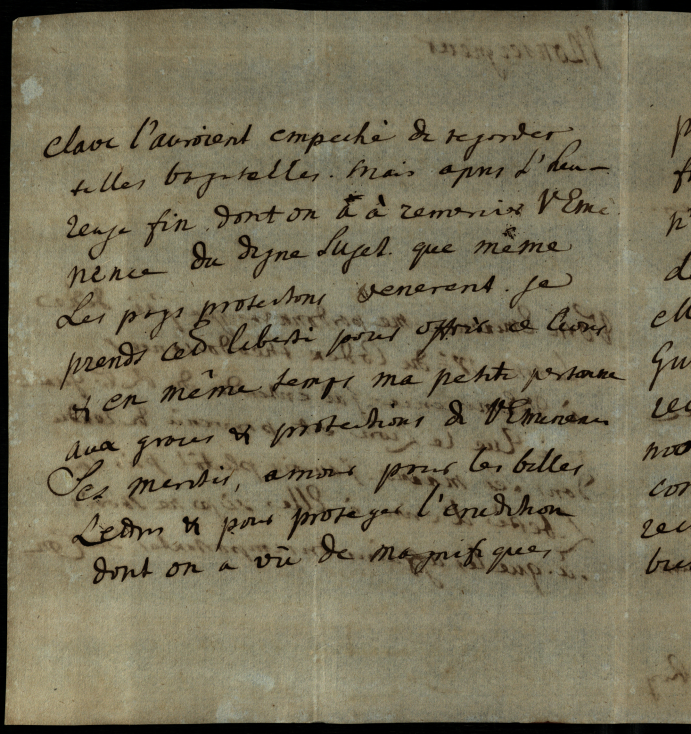 clave l'auroient empeché de regarder
telles bagatelles. Mais apres l'heu-
reuse fin dont on a à remercier V Emi-
nence du digne Sujet que même
Les pays protestons venerent. je
prends cette liberté pour offrir ce livre
& en même temps ma petite personne
aux graces & protections de V Eminence
Ses merites, amour pour les belles
Lettres & pour proteger l'erudition
dont on a vû de magnifiques